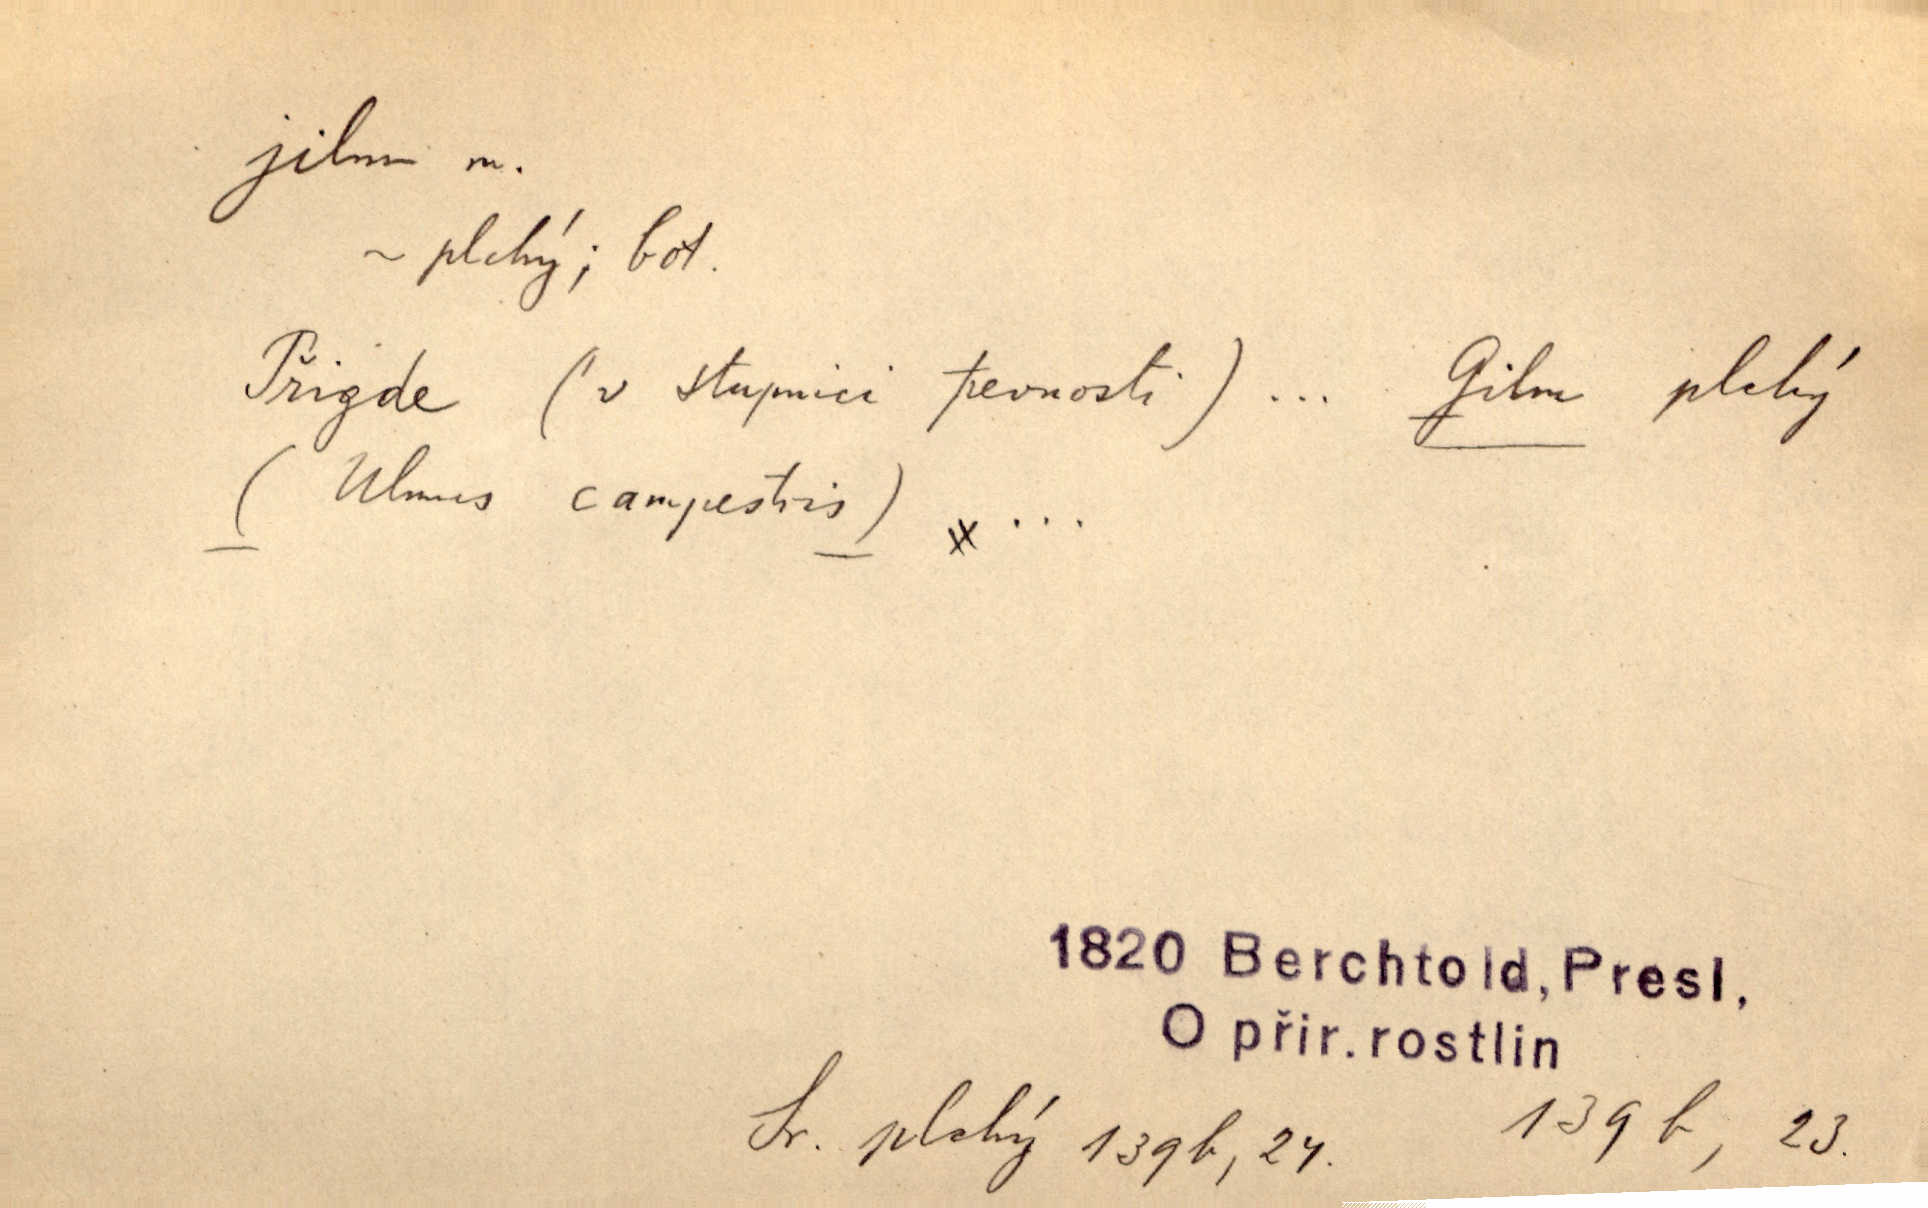 jilm m.
~ plchý; bot.
Přigde (v stupnici pevnosti) ... Gilm plchý
(Ulmus campestris) ...
1820 Berchtold, Presl,
O přir. rostlin
Sr. plchý 139b, 24. 139b, 23.